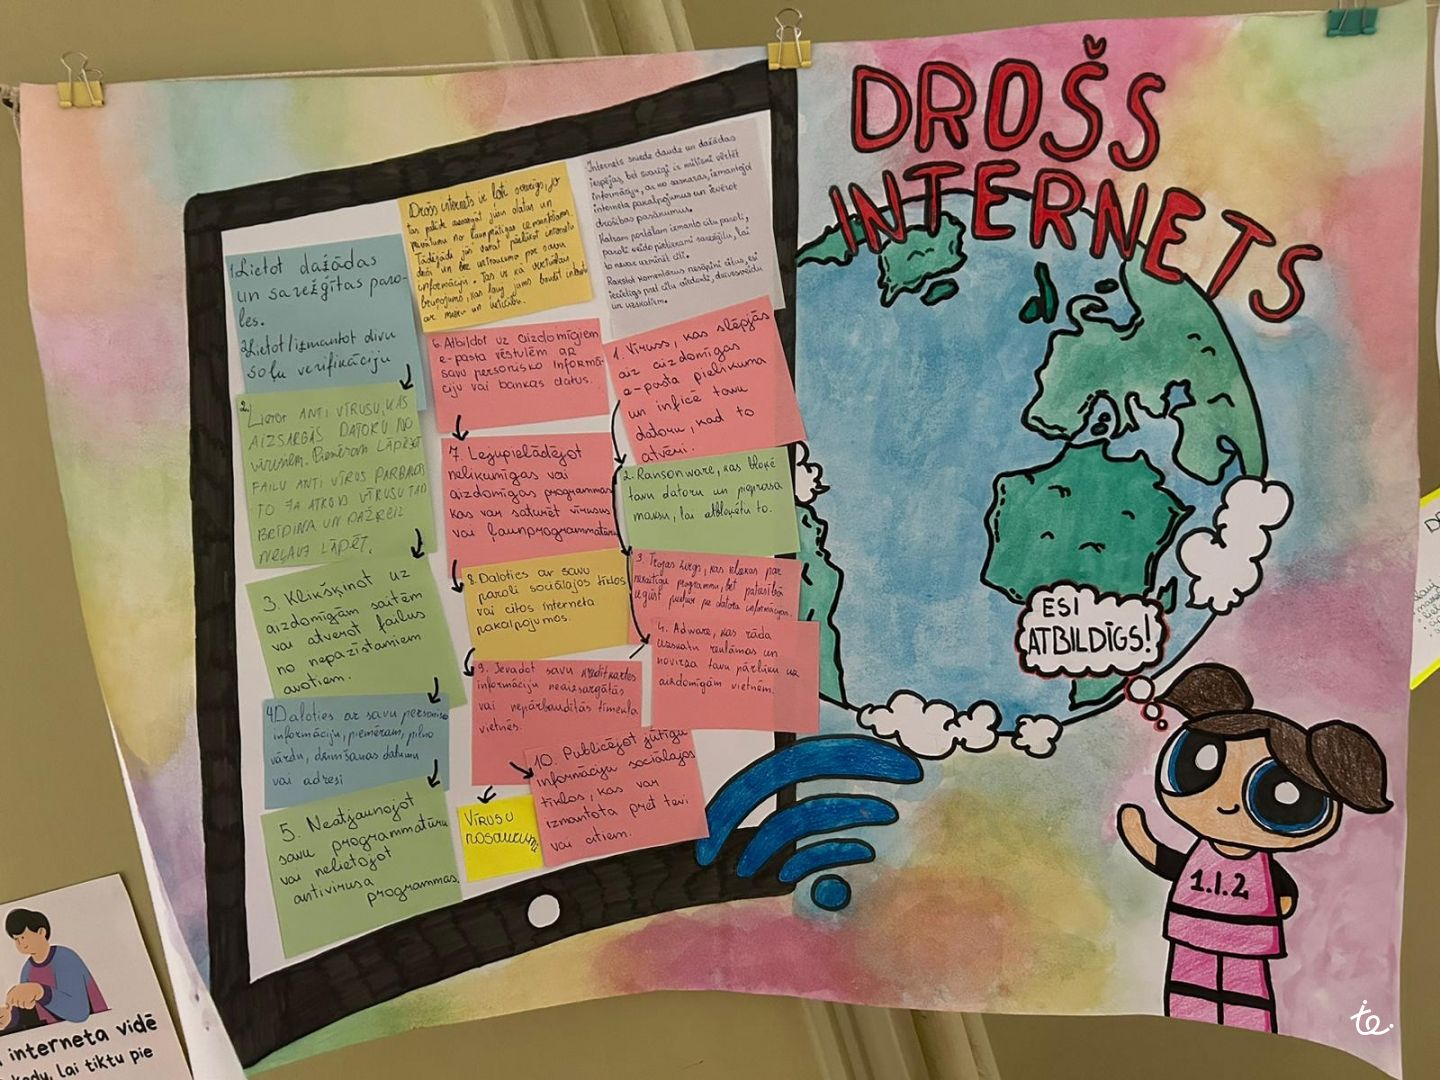 DROŠS
INTERNETS
1. Lietot dažādas
un sarežģītas paro-
les.
2. Lietot/izmantot divu
soļu verifikāciju
2. Lietot ANTI VĪRUSU, KAS
AIZSARGĀS DATORU NO
vīrusiem. Piemēram LĀPĒJOT
FAILU ANTI VĪRUS PARBAUDA
TO JA ATROD VĪRUSU TAD
BRĪDINA UN DAŽREIZ
NEĻAUJ LĀPĒT.
3. Klikšķinot uz
aizdomīgām saitēm
vai atverot failus
no nepazīstamiem
avotiem.
4. Daloties ar savu personisko
informāciju, piemēram, pilno
vārdu, dzimšanas datumu
vai adresi
5. Neatjaunojot
savu programmatūru
vai nelietojot
antivīrusa
programmas.
Drošs internets ir ļoti svarīgs, jo
tas palīdz aizsargāt jūsu datus un
privātumu no ļaunprātīgas izmantošanas.
Tādējādi jūs varat pārlūkot internetu
droši un bez uztraukuma par savu
informāciju. Tas ir kā virtuālas
bruņojums, kas ļauj jums baudīt internetu
ar mieru un
6. Atbildot uz aizdomīgiem
e-pasta vēstulēm ar
savu personisko informā-
ciju vai bankas datus.
7. Lejupielādējot
nelikumīgas vai
aizdomīgas programmas,
kas var saturēt vīrusus
vai ļaunprogrammatūru.
8. Daloties ar savu
paroli sociālajos tīklos
vai citos interneta
pakalpojumos.
9. Ievadot savu kredītkartes
informāciju neaizsargātās
vai nepārbaudītās tīmekļa
vietnēs.
10. Publicējot jūtīgu
informāciju sociālajos
tīklos, kas var
izmantota pret tevi
vai citiem.
VĪRUSU
nosaukumi
Internets sniedz daudz un dažādas
iespējas, bet svarīgi ir mācīties vērtēt
informāciju, ar ko saskaras, izmantojot
interneta pakalpojumus un ievērot
drošības pasākumus.
Katram portālam izmanto citu paroli,
paroli veido pietiekami sarežģītu, lai
to nevar uzminēt citi.
Rakstot komentārus nesāpini citus, esi
iecietīgs pret citu viedokli, dzīvesveidu
un uzskatiem.
1. Vīruss, kas slēpjās
aiz aizdomīgas
e-pasta pielikuma
un inficē tavu
datoru, kad to
atvēri.
2. Ransonware, kas bloķē
tavu datoru un pieprasa
maksu, lai atbloķētu to.
3. Trojas zirgs, kas izliekas par
nekaitīgu programmu, bet patiesībā
iegūst piekļuvi pie datora informācijas.
4. Adware, kas rāda
uzskatu reklāmas un
novirza tavu pārlūku uz
aizdomīgām vietnēm.
ESI
ATBILDĪGS!
1.1.2
interneta vidē
kodu, lai tiktu pie